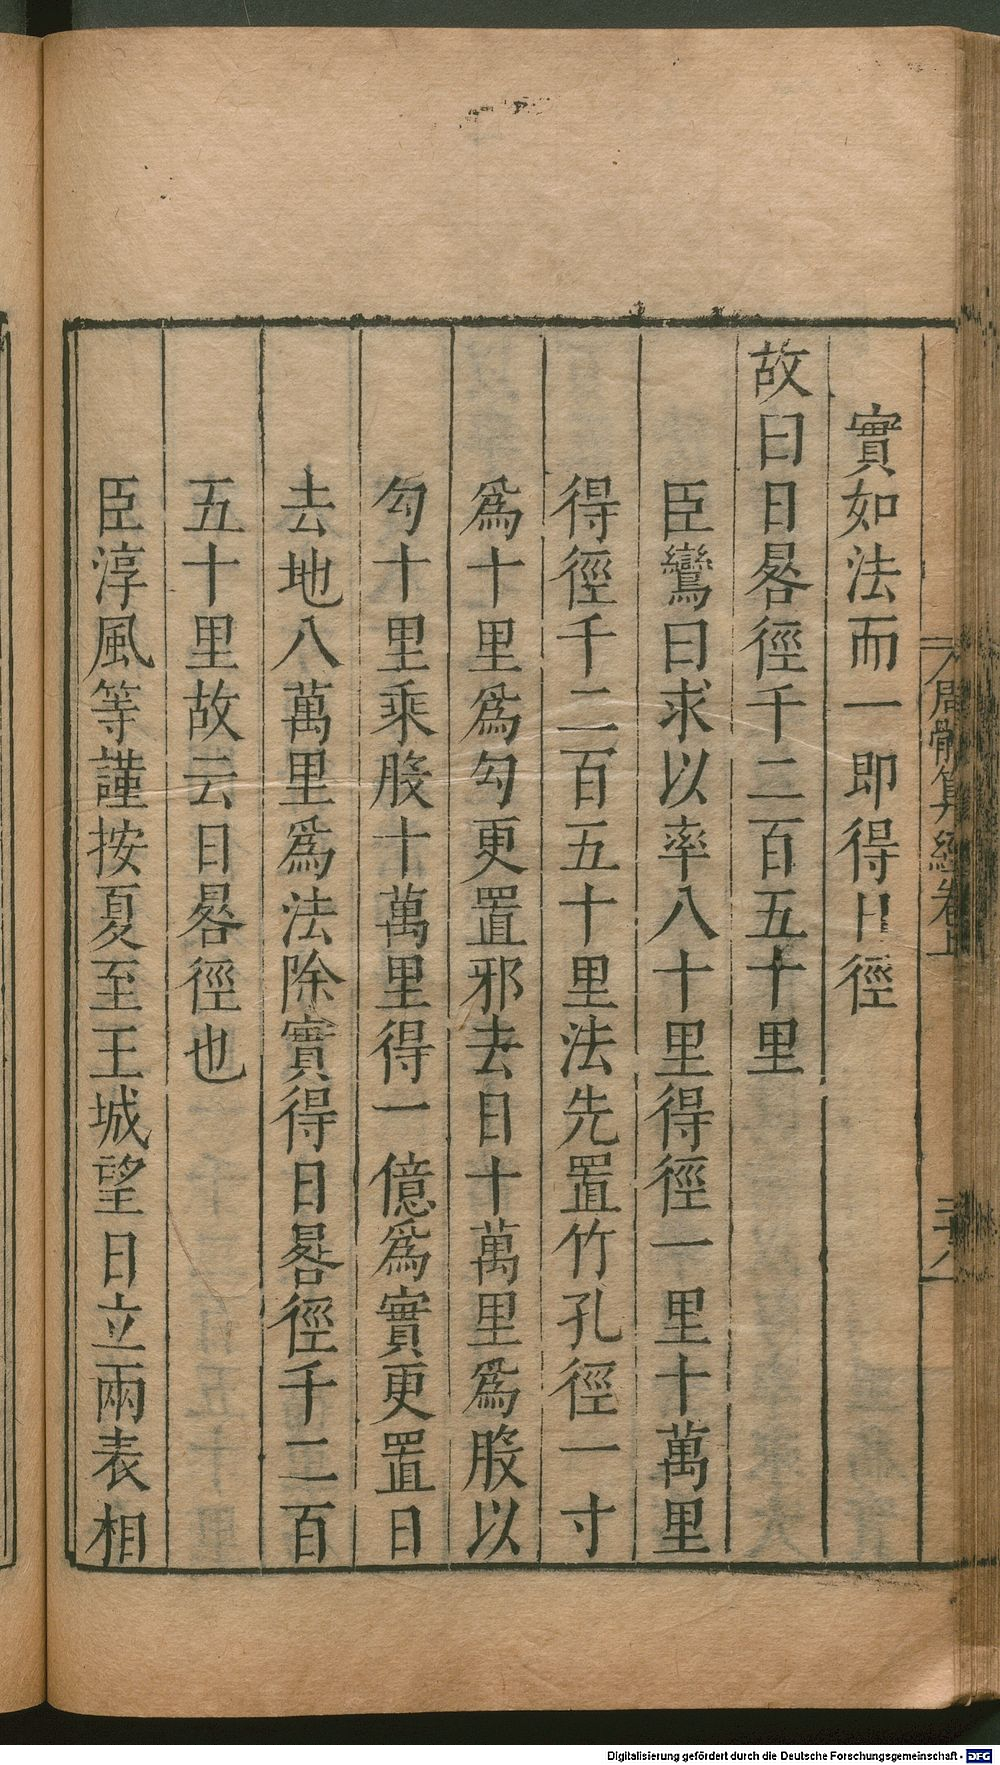 實如法而一即得日徑
故曰日晷徑千二百五十里
臣鸞曰求以率八十里得徑一里十萬里
得徑千二百五十里法先置竹孔徑一寸
爲十里爲勾更置邪去日十萬里爲股以
勾十里乘股十萬里得一億爲實更置日
去地八萬里爲法除實得日晷徑千二百
五十里故云日晷徑也
臣淳風等謹按夏至王城望日立兩表相
周髀算經卷上
二十八
Digitalisierung gefördert durch die Deutsche Forschungsgemeinschaft - DFG